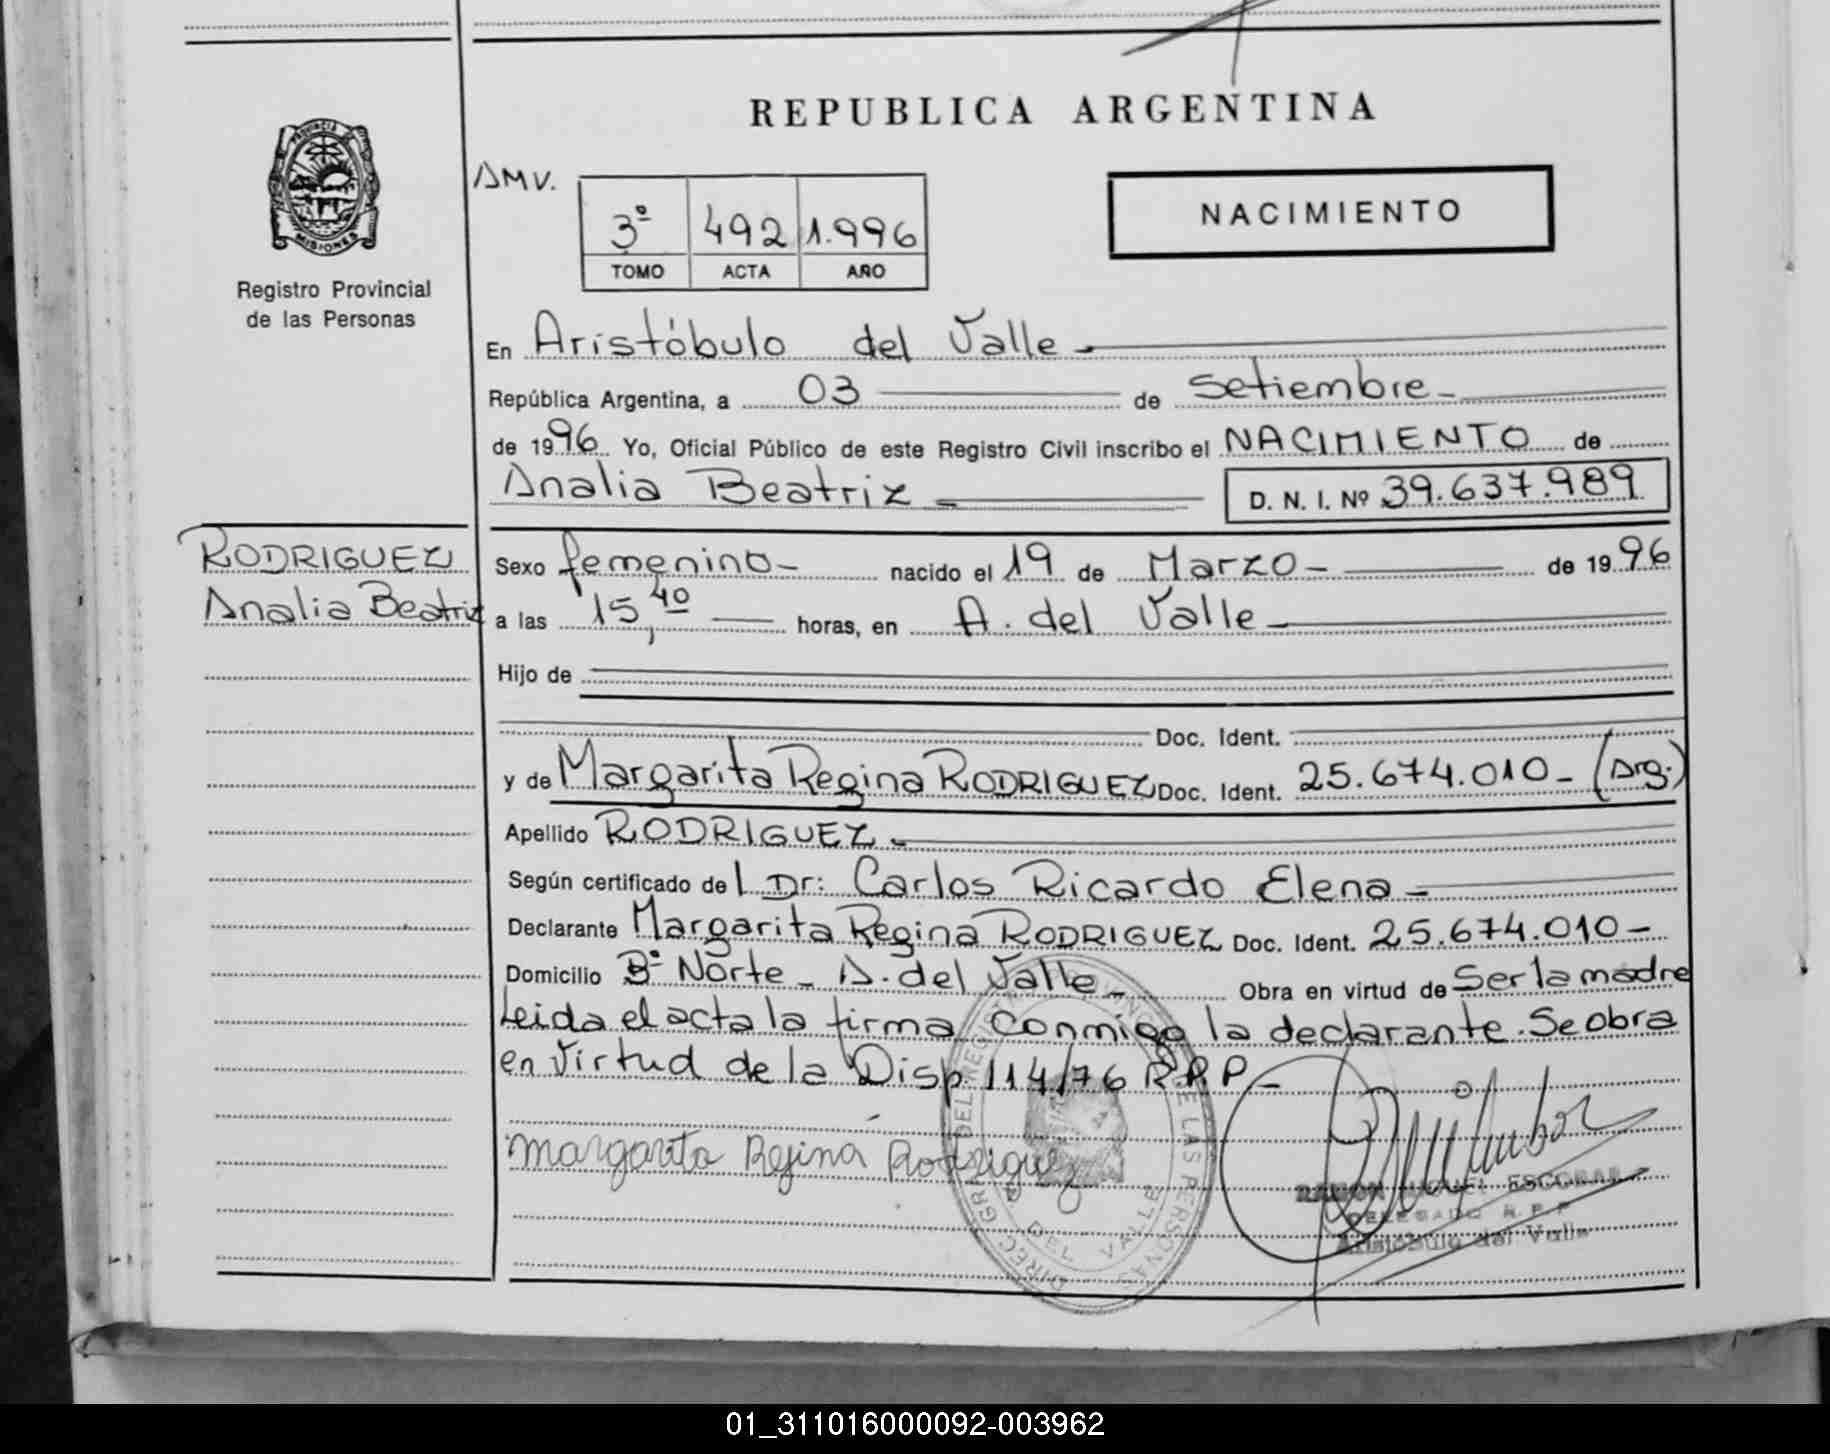 REPUBLICA ARGENTINA
PROVINCIA DE
MISIONES
Registro Provincial
de las Personas
AMV.
3º 492 1.996
TOMO ACTA AÑO
NACIMIENTO
En Aristóbulo del Valle
República Argentina, a 03 de Setiembre
de 1996 Yo, Oficial Público de este Registro Civil inscribo el NACIMIENTO de
Analia Beatriz D. N. I. Nº 39.637.989
RODRIGUEZ
Analia Beatriz
Sexo femenino nacido el 19 de Marzo de 1996
a las 15,40 horas, en A. del Valle
Hijo de
Doc. Ident.
y de Margarita Regina RODRIGUEZ Doc. Ident. 25.674.010 (Arg.)
Apellido RODRIGUEZ
Según certificado del Dr: Carlos Ricardo Elena
Declarante Margarita Regina RODRIGUEZ Doc. Ident. 25.674.010
Domicilio Bº Norte - A. del Valle Obra en virtud de Ser la madre
Leida el acta la firma conmigo la declarante. Se obra
en virtud de la Disp 114/76 R.P.P
Margarita Regina Rodriguez
RAMON MIGUEL ESCOBAR
DELEGADO R. P. P
Aristóbulo del Valle
DEL VALLE
01_311016000092-003962